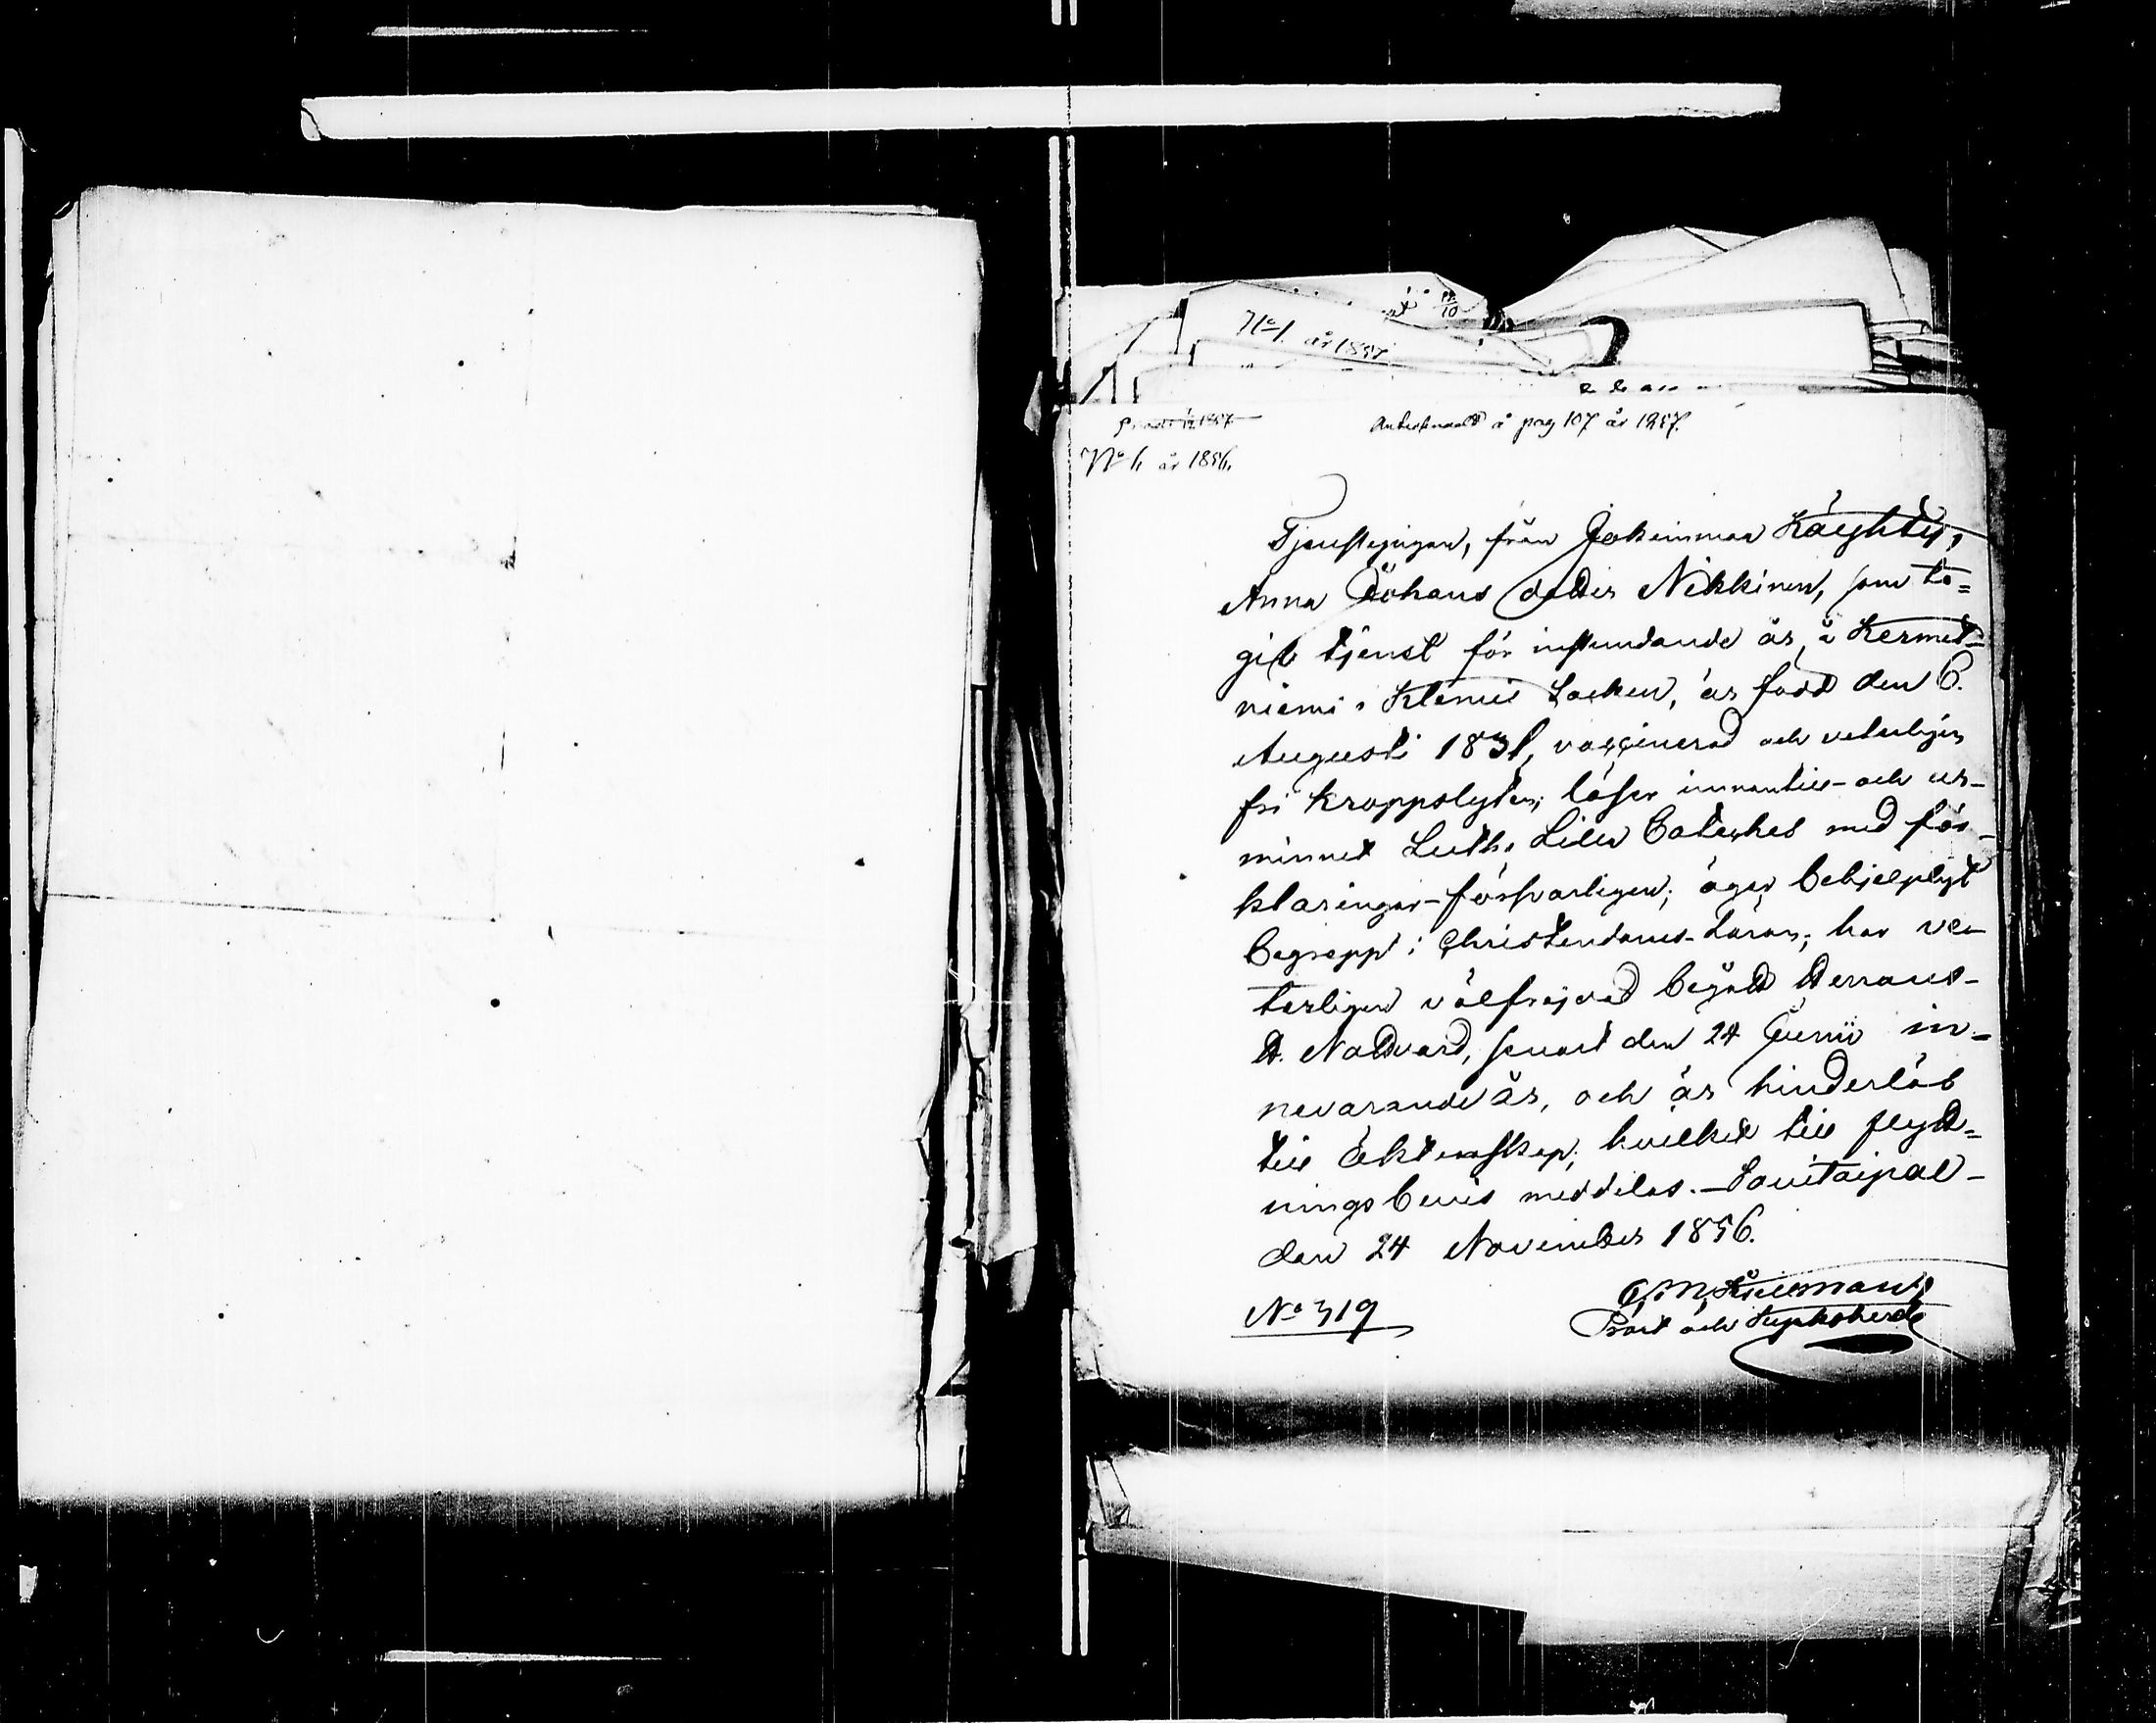 No 1. år 1857
Antecknadt å pag 107 år 1857.
No 4 år 1856.
Tjenstepigan, från Jokeinmaa Käyhty,
Anna Johans dotter Nikkinen, som ta=
git tjenst för instundande år, å Kermet=
niemi i Klemis Socken, är född den 6.
Augusti 1831, vaccinerad och veterligen
fri kroppslyten; läser innantill- och ur-
minnet Luth. Lilla Cateches med för-
klaringar-försvarligen; äger behjelpligt
begrepp i Christendoms-Läran; har ve-
terligen välfrejdad begått Herrans-
H. Nattvard, senast den 24 Junii in-
nevarande år, och är hinderlös
till Äktenskap; hvilket till flytt=
nings bevis meddelas.-Savitaipal-
den 24 November 1856.
No 319
Prost och Kyrkoherde